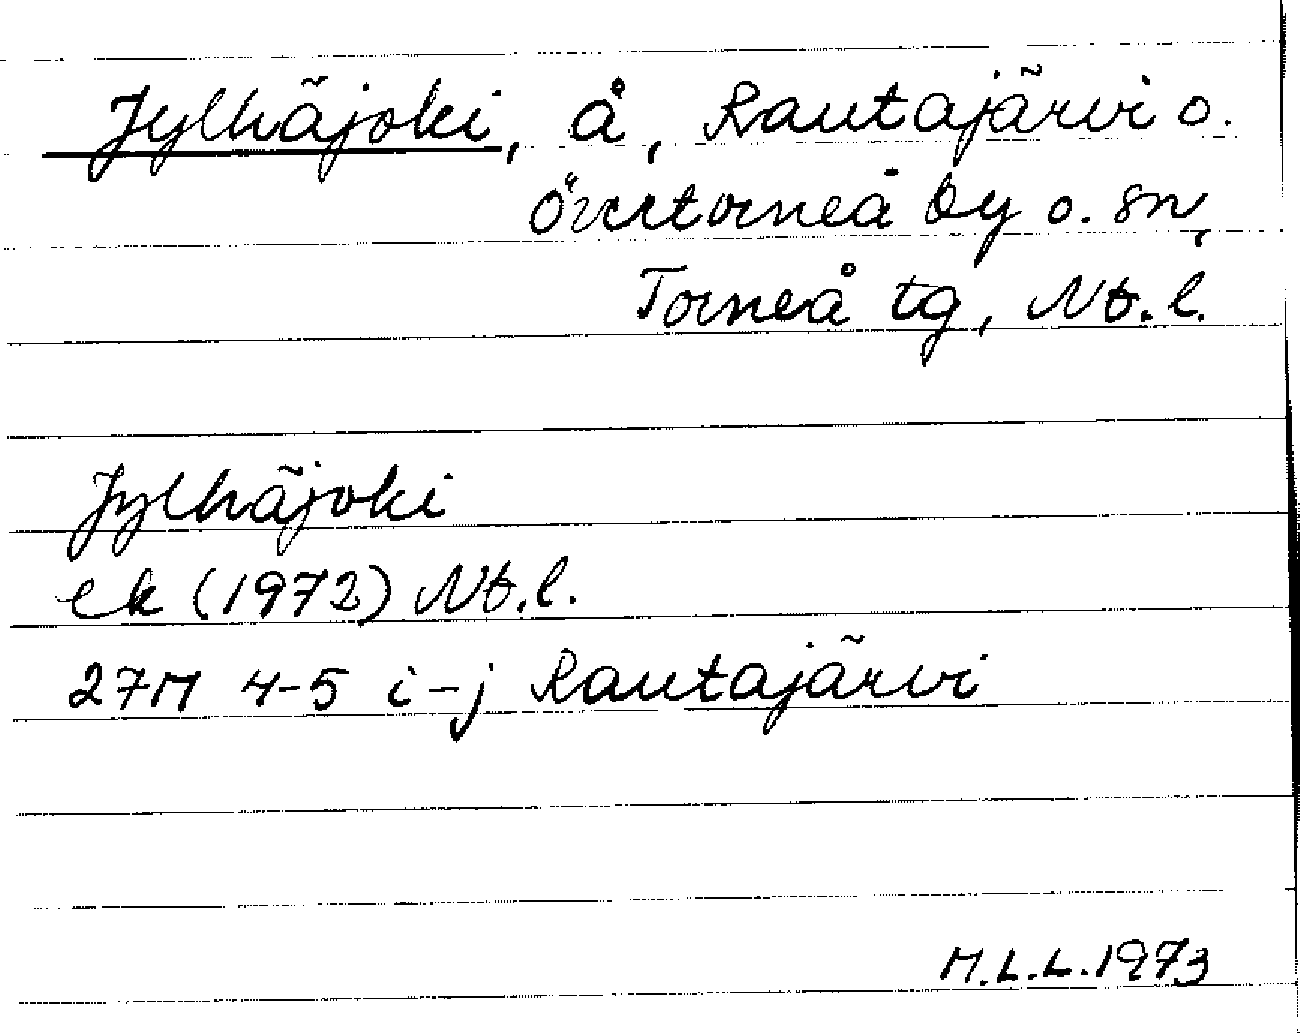 Jylhäjoki, å, Rautajärvi o.
Övertorneå by o. sn,
Torneå tg, Nb.l.
Jylhäjoki
ek (1972) Nb.l.
27M 4-5 i-j Rautajärvi
M.L.L.1973